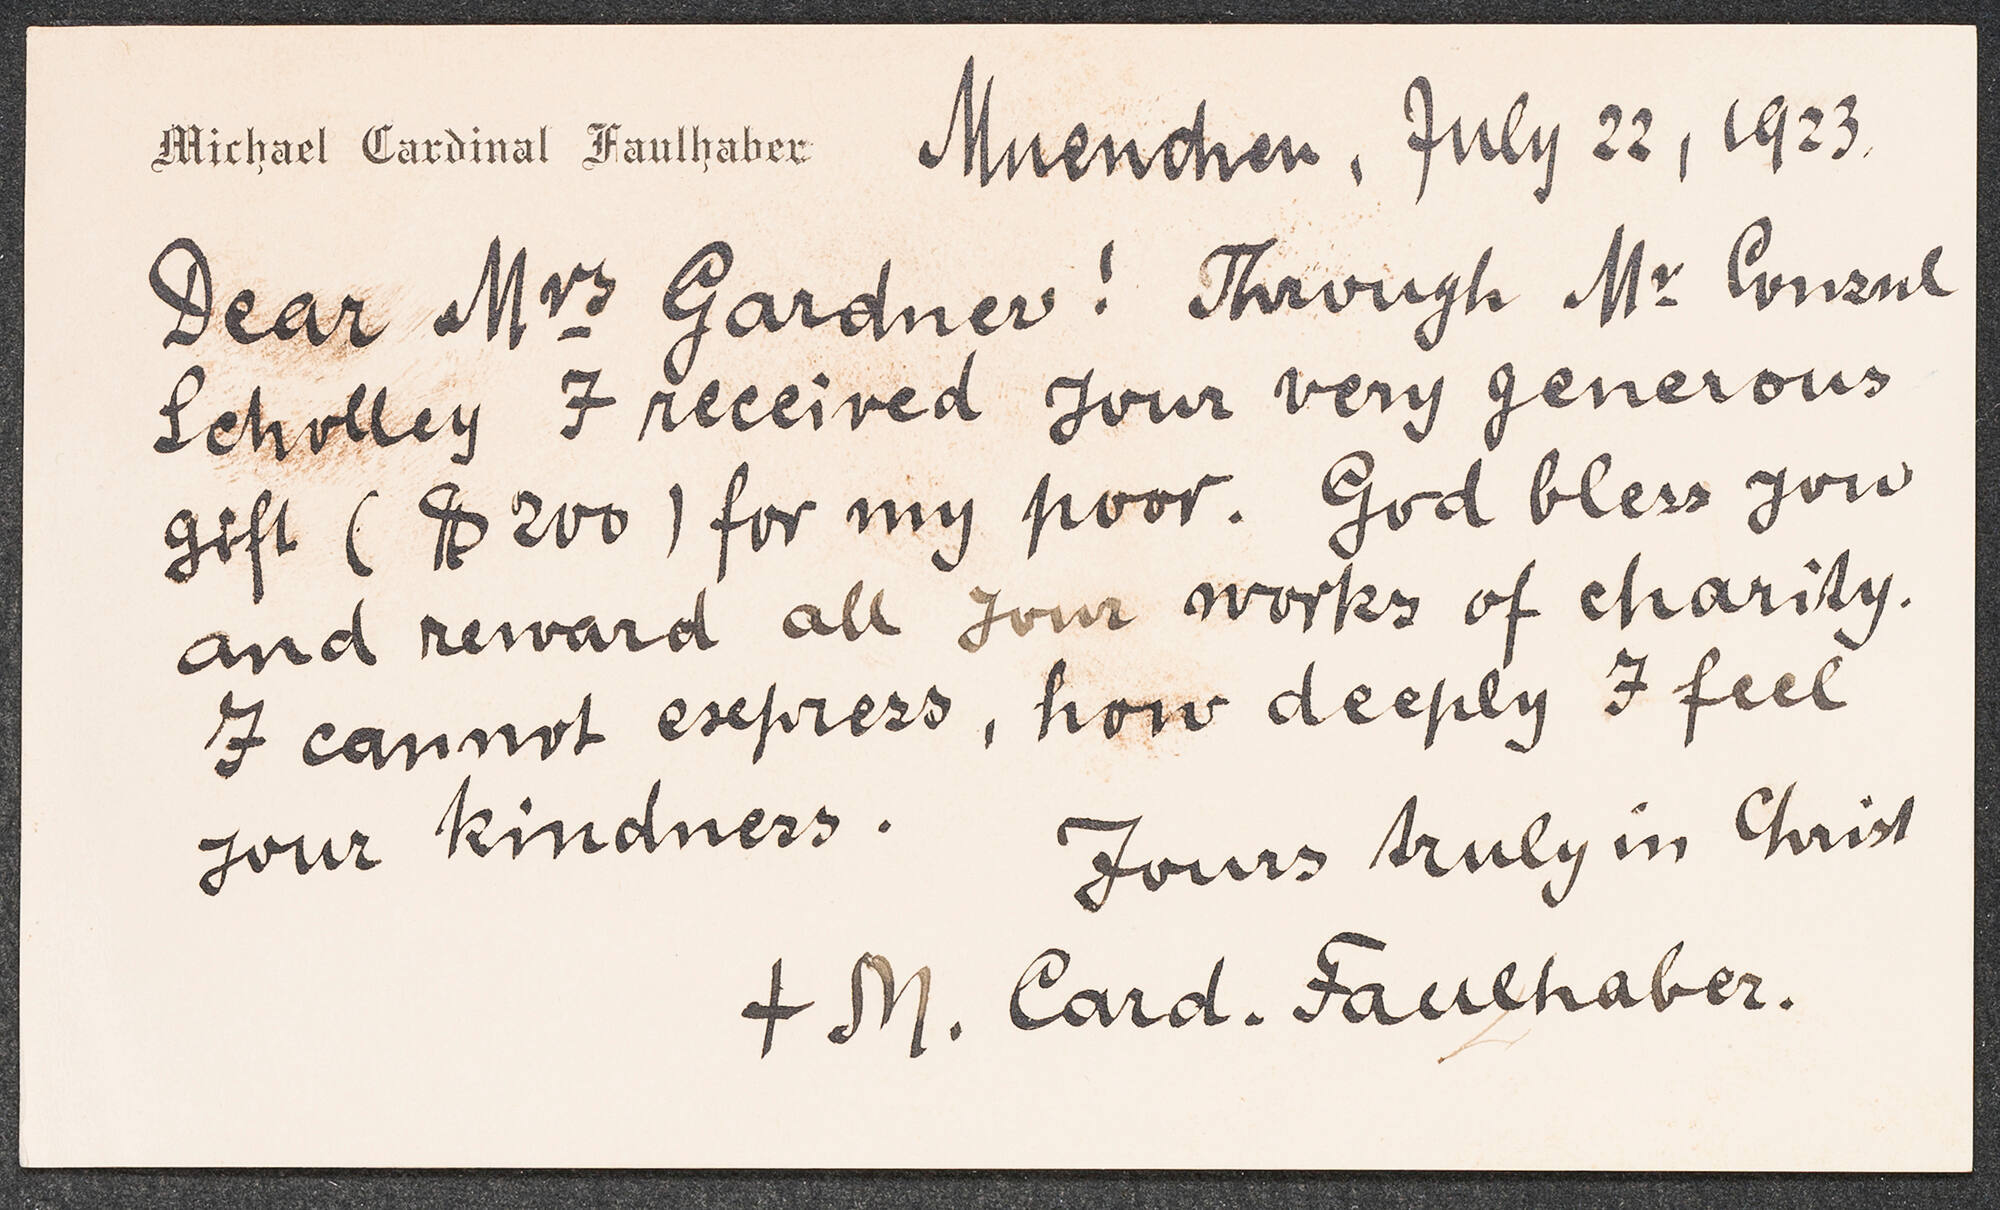 Michael Cardinal Faulhaber Muenchen, July 22, 1923.
Dear Mrs Gardner! Through Mr Consul
Scholley I received your very generous
gift ($200) for my poor. God bless you
and reward all your works of charity.
I cannot express, how deeply I feel
your kindness. Yours truly in Christ
+ M. Card. Faulhaber.